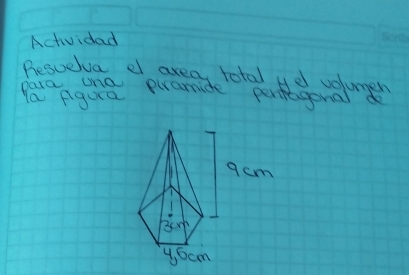 Actividad
Resuelva el area total y el volumen
para una piramide pentagonal de
la figura
9 cm
3cm
4,6cm